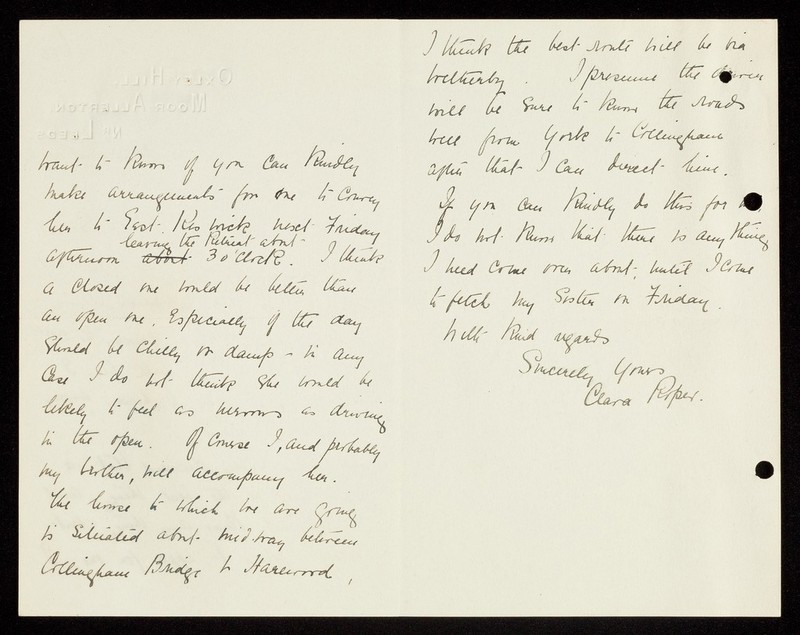 want to know if you can kindly
make arrangements for one to convey
her to East Keswick next Friday
leaving the Retreat about
afternoon about 3 o'clock. I think
a closed one would be better than
an open one, Especially if the day
should be chilly or damp - in any
case I do not think she would be
likely to feel as nervous as driving
in the open. Of course I, and probably
my brother, will accompany her.
The house to which we are going
is situated about midway between
Collingham Bridge & Harewood,
I think the best route will be via
Wetherby. I presume the driver
will be sure to know the roads
well from York to Collingham
after that I can direct him.
If you can kindly do this for
I do not know that there is any thing
I need come over about, until I come
to fetch my Sister on Friday.
With kind regards
Sincerely Yours
Clara Roper.
Oxen Hill
Moor Allerton
Nr Leeds